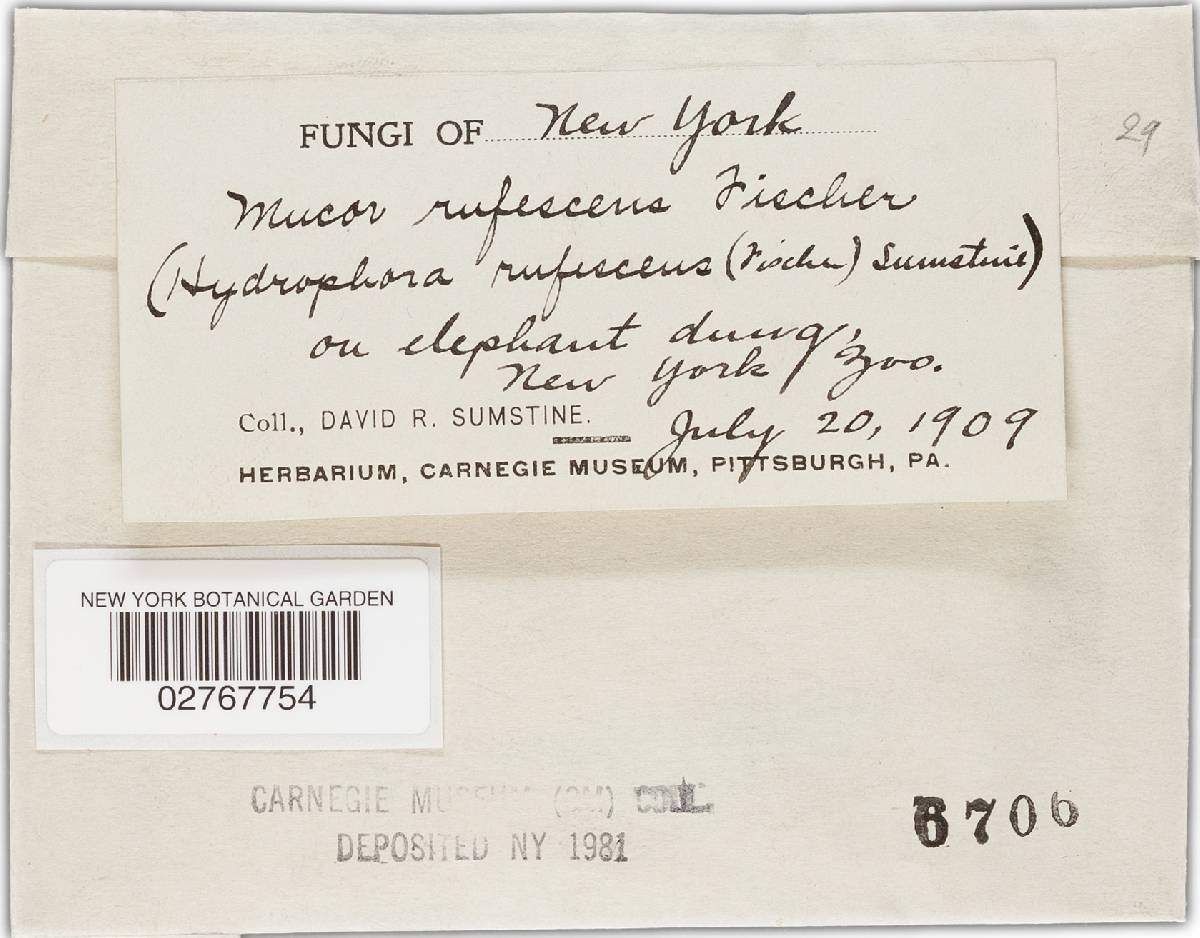 FUNGI OF New York
29
Mucor rufescens Fischer
(Hydrophora rufescens (Fischer) Sumstine)
on elephant dung,
New York Zoo.
Coll., DAVID R. SUMSTINE.
July 20, 1909
HERBARIUM, CARNEGIE MUSEUM, PITTSBURGH, PA.
NEW YORK BOTANICAL GARDEN
02767754
CARNEGIE MUSEUM (CM) COLL.
DEPOSITED NY 1981
6706